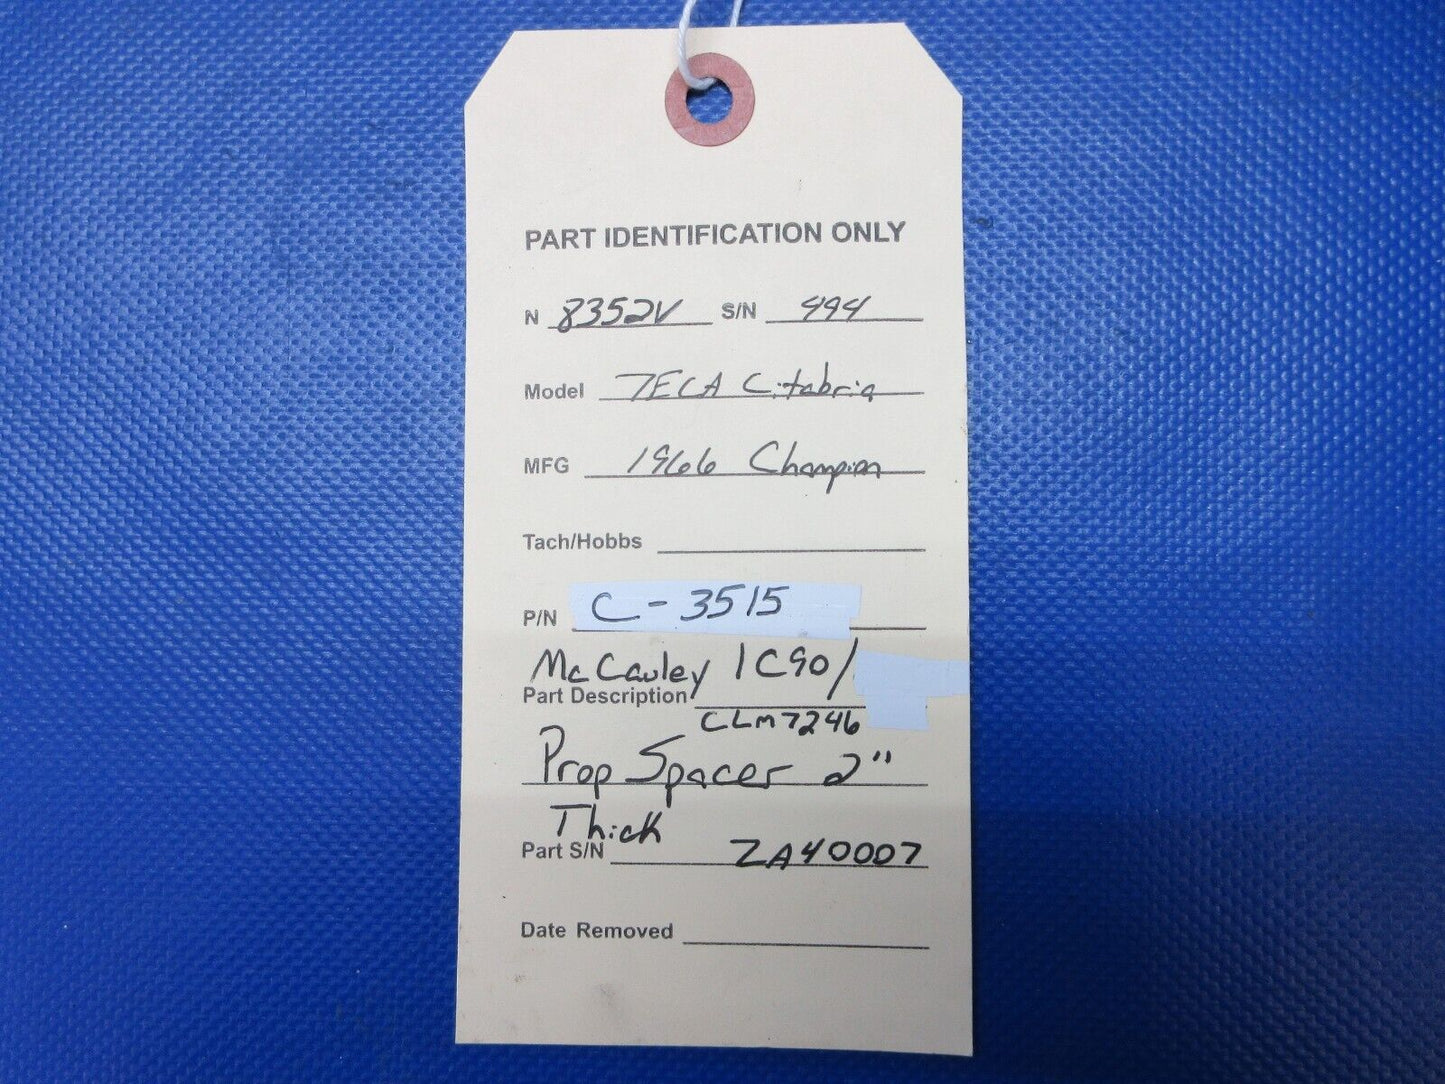 PART IDENTIFICATION ONLY
N 8352V S/N 494
Model 7ECA Citabria
MFG 1966 Champion
Tach/Hobbs
P/N C-3515
McCauley 1C90/
Part Description
CLM7246
Prop Spacer 2"
Thick
Part S/N ZA40007
Date Removed